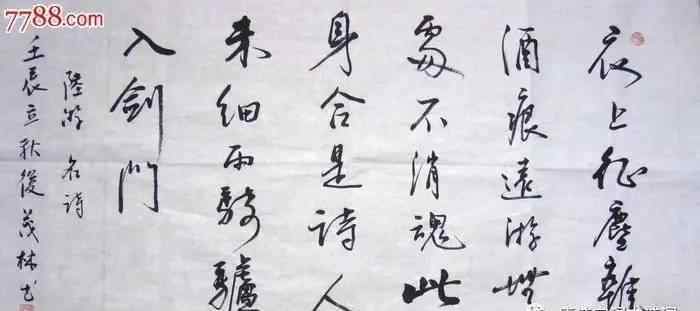 衣上征塵雜
酒痕遠游無
處不消魂此
身合是詩人
未細雨騎驢
入劍門
陸游名詩
壬辰立秋後茂林书
7788.com